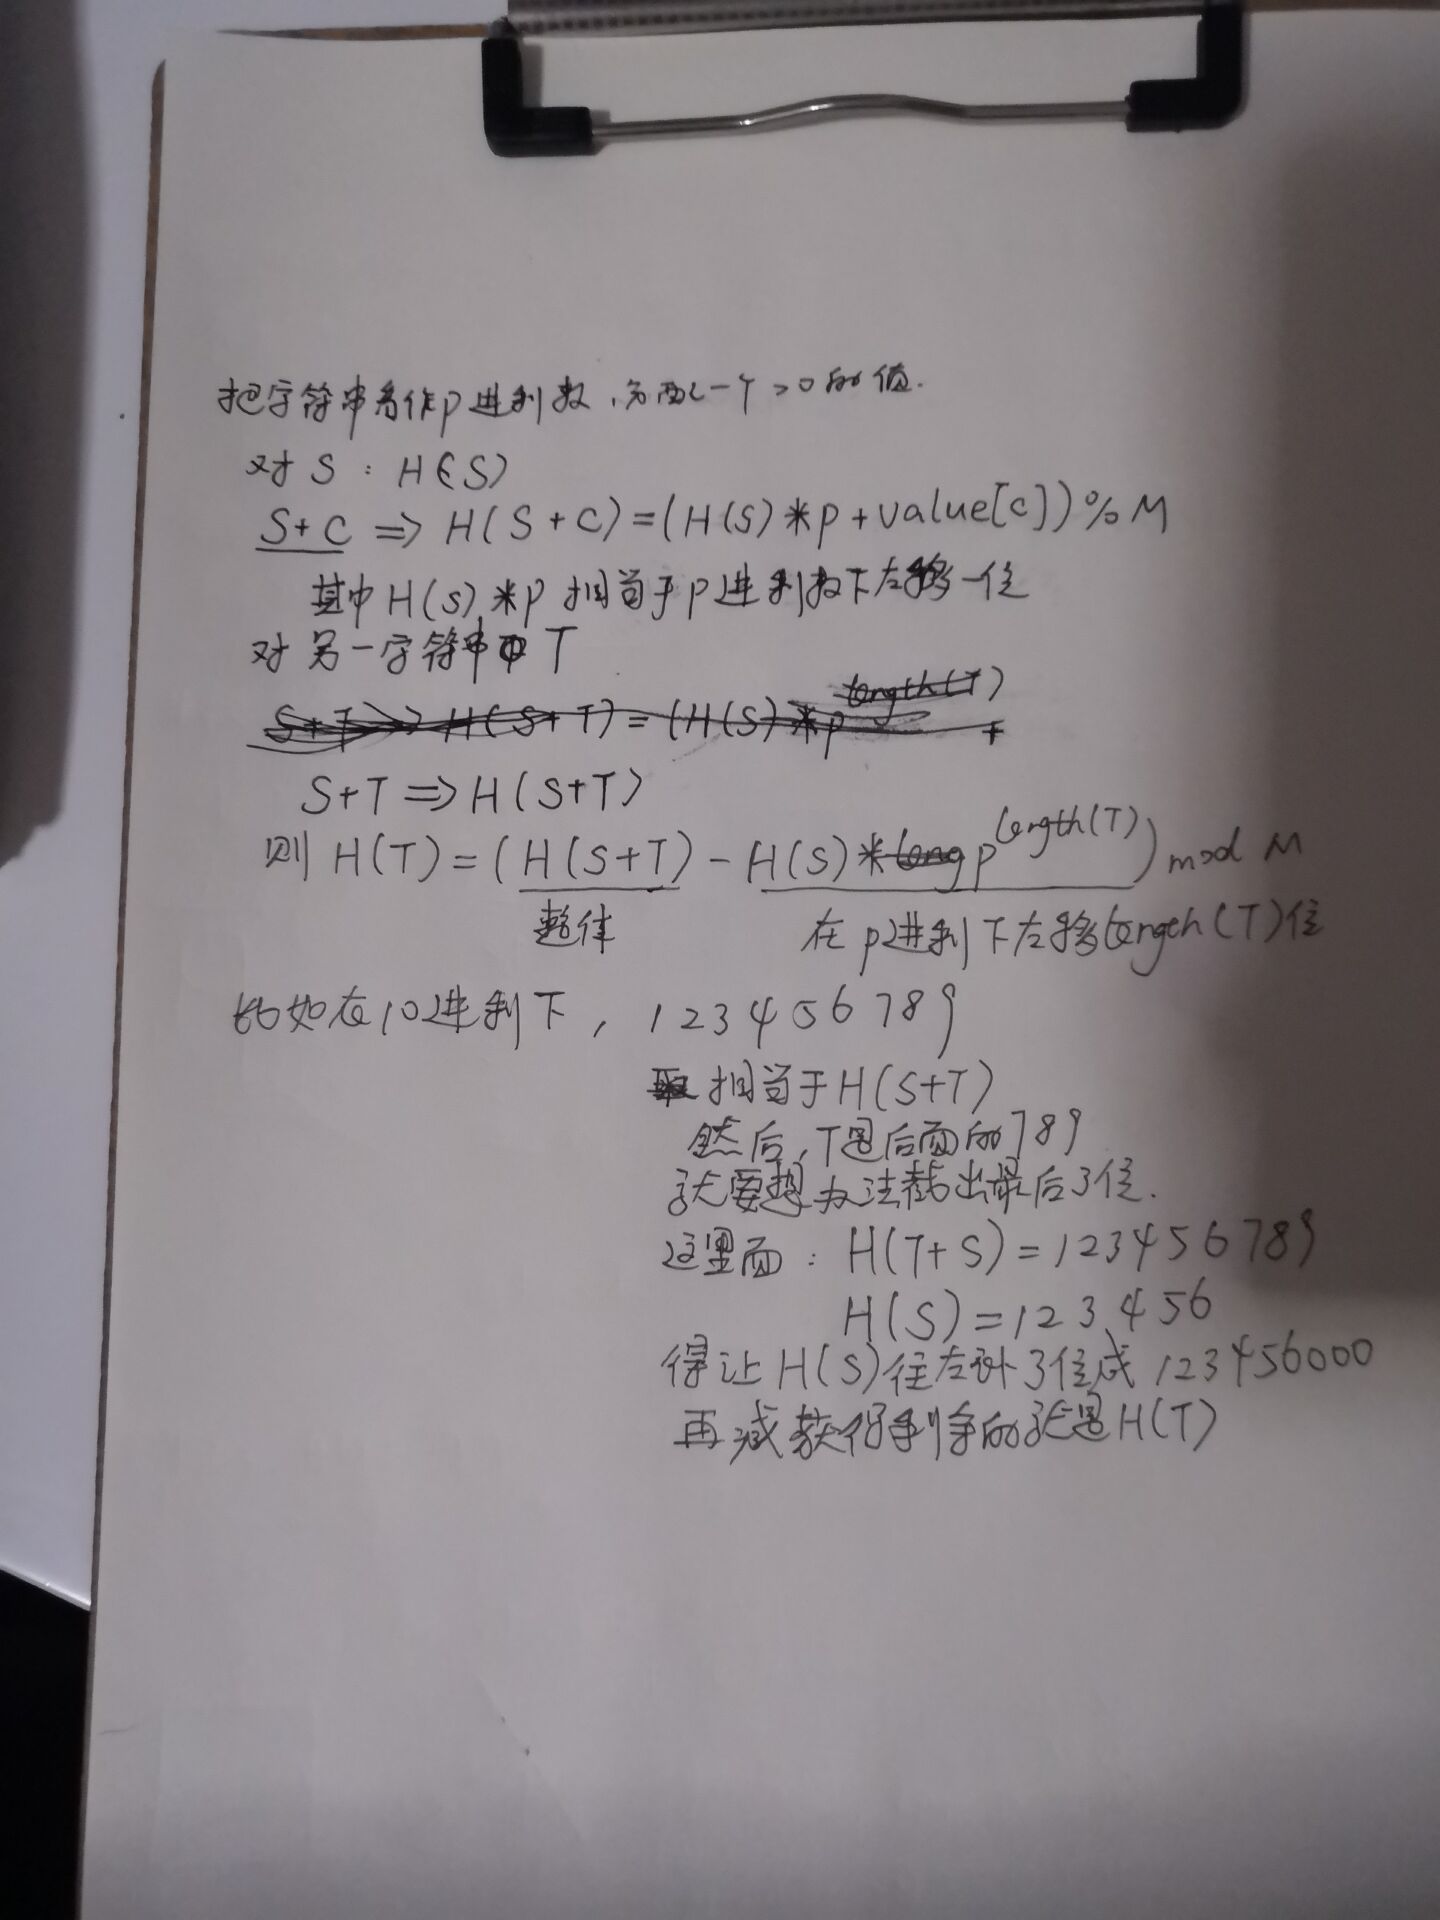 把字符串看作p进制数,分配一个>0的值.
对S:H(S)
S+C⇒H(S+C)=(H(S)*p+value[c])%M
其中H(s)*p相当于p进制数下左移一位
对另一字符串T
S+T⇒H(S+T)=(H(S)*p^length(T)+
S+T⇒H(S+T)
则H(T)=(H(S+T)-H(S)*p^length(T))mod M
整体 在p进制下左移length(T)位
比如在10进制下,123456789
相当于H(S+T)
然后,T是后面的789
就要想办法截出最后3位.
这里面:H(T+S)=123456789
H(S)=123456
得让H(S)往左补3位成123456000
再减获得剩余的就是H(T)